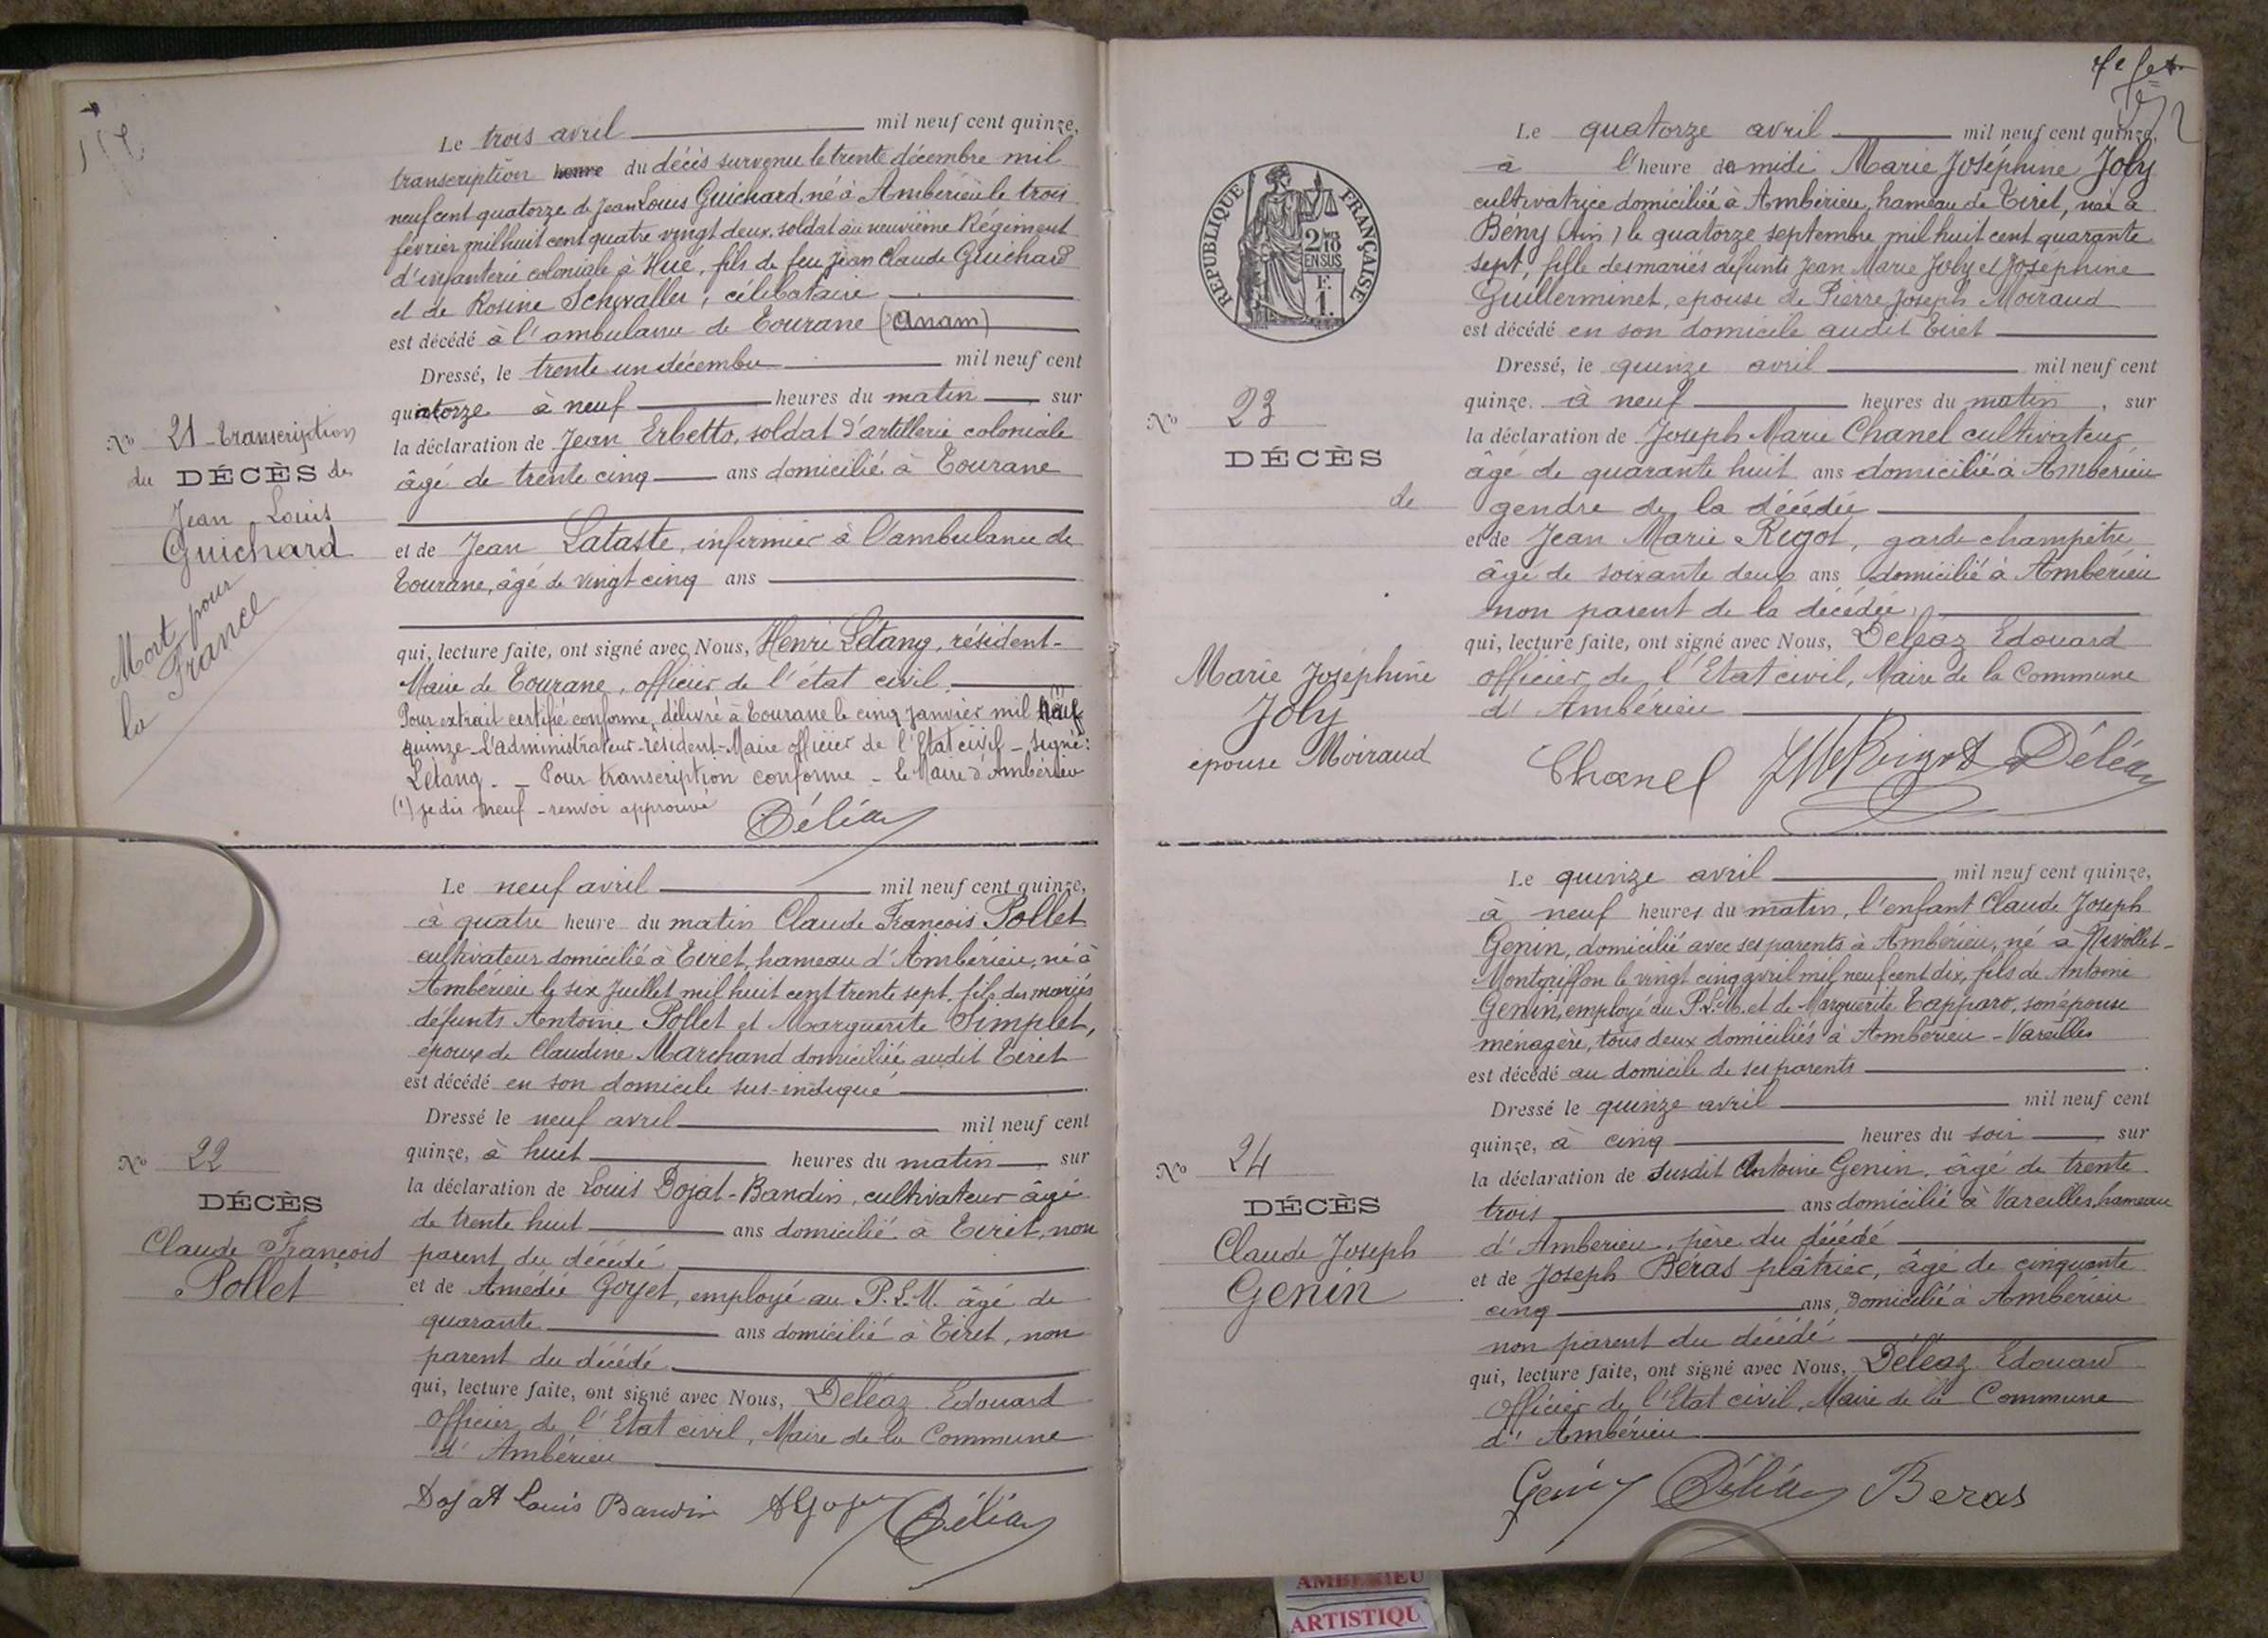 Le trois avril mil neuf cent quinze,
transcription heure du décès survenu le trente décembre mil
neuf cent quatorze de Jean Louis Guichard, né à Ambérieu le trois
février mil huit cent quatre vingt deux, soldat au neuvième Régiment
d'infanterie coloniale à Hué, fils de feu Jean Claude Guichard
et de Rosine Schwaller, célibataire
est décédé à l'ambulance de Tourane (Anam)
Dressé, le trente un décembre mil neuf cent
quatorze à neuf heures du matin sur
la déclaration de Jean Erbetto, soldat d'artillerie coloniale
âgé de trente cinq ans domicilié à Tourane
et de Jean Lataste, infirmier à l'ambulance de
Tourane, âgé de vingt cinq ans
qui, lecture faite, ont signé avec Nous, Henri Létang, résident-
Maire de Tourane, officier de l'état civil.
Pour extrait certifié conforme, délivré à Tourane le cinq janvier mil neuf (1)
quinze - L'administrateur-résident-Maire officier de l'Etat civil - signé:
Létang. - Pour transcription conforme - Le Maire d'Ambérieu
(1) je dis neuf - renvoi approuvé
Déléaz
No 21 - transcription
du DÉCÈS de
Jean Louis
Guichard
Mort pour
la France
Le neuf avril mil neuf cent quinze,
à quatre heure du matin Claude François Pollet
cultivateur domicilié à Tiret, hameau d'Ambérieu, né à
Ambérieu le six juillet mil huit cent trente sept, fils des mariés
défunts Antoine Pollet et Marguerite Simplet,
époux de Claudine Marchand domiciliée audit Tiret
est décédé en son domicile sus-indiqué
Dressé le neuf avril mil neuf cent
quinze, à huit heures du matin sur
la déclaration de Louis Dojat-Bandin, cultivateur âgé
de trente huit ans domicilié à Tiret, non
parent du décédé
et de Amédée Goyet, employé au P.L.M. âgé de
quarante ans domicilié à Tiret, non
parent du décédé
qui, lecture faite, ont signé avec Nous, Deléaz Edouard
Officier de l'Etat civil, Maire de la Commune
d'Ambérieu
Dojat Louis Bandin AGoyet Déléaz
No 22
DÉCÈS
Claude François
Pollet
RÉPUBLIQUE FRANÇAISE
2/10
EN SUS
F.
1.
Le quatorze avril mil neuf cent quinze,
à l'heure de midi Marie Joséphine Joly
cultivatrice domiciliée à Ambérieu, hameau de Tiret, née à
Bény (Ain) le quatorze septembre mil huit cent quarante
sept, fille des mariés défunts Jean Marie Joly et Joséphine
Guillerminet, épouse de Pierre Joseph Moiraud
est décédé en son domicile audit Tiret
Dressé, le quinze avril mil neuf cent
quinze. à neuf heures du matin, sur
la déclaration de Joseph Marie Chanel cultivateur
âgé de quarante huit ans domicilié à Ambérieu
gendre de la décédée
et de Jean Marie Rigot, garde champêtre
âgé de soixante deux ans domicilié à Ambérieu
non parent de la décédée,
qui, lecture faite, ont signé avec Nous, Deléaz Edouard
officier de l'Etat civil, Maire de la Commune
d'Ambérieu
Chanel JM Rigot Déléaz
No 23
DÉCÈS
de
Marie Joséphine
Joly
épouse Moiraud
Le quinze avril mil neuf cent quinze,
à neuf heures du matin, l'enfant Claude Joseph
Genin, domicilié avec ses parents à Ambérieu, né à Nivollet-
Montgriffon le vingt cinq avril mil neuf cent dix, fils de Antoine
Genin, employé au P.L.M. et de Marguerite Tapparo, son épouse
ménagère, tous deux domiciliés à Ambérieu - Vareilles
est décédé au domicile de ses parents
Dressé le quinze avril mil neuf cent
quinze, à cinq heures du soir sur
la déclaration de susdit Antoine Genin, âgé de trente
trois ans domicilié à Vareilles, hameau
d'Ambérieu, père du décédé
et de Joseph Béras plâtrier, âgé de cinquante
cinq ans, domicilié à Ambérieu
non parent du décédé
qui, lecture faite, ont signé avec Nous, Deléaz Edouard
Officier de l'Etat civil, Maire de la Commune
d'Ambérieu
Genin Déléaz Beras
No 24
DÉCÈS
Claude Joseph
Genin
AMBERIEU
ARTISTIQU